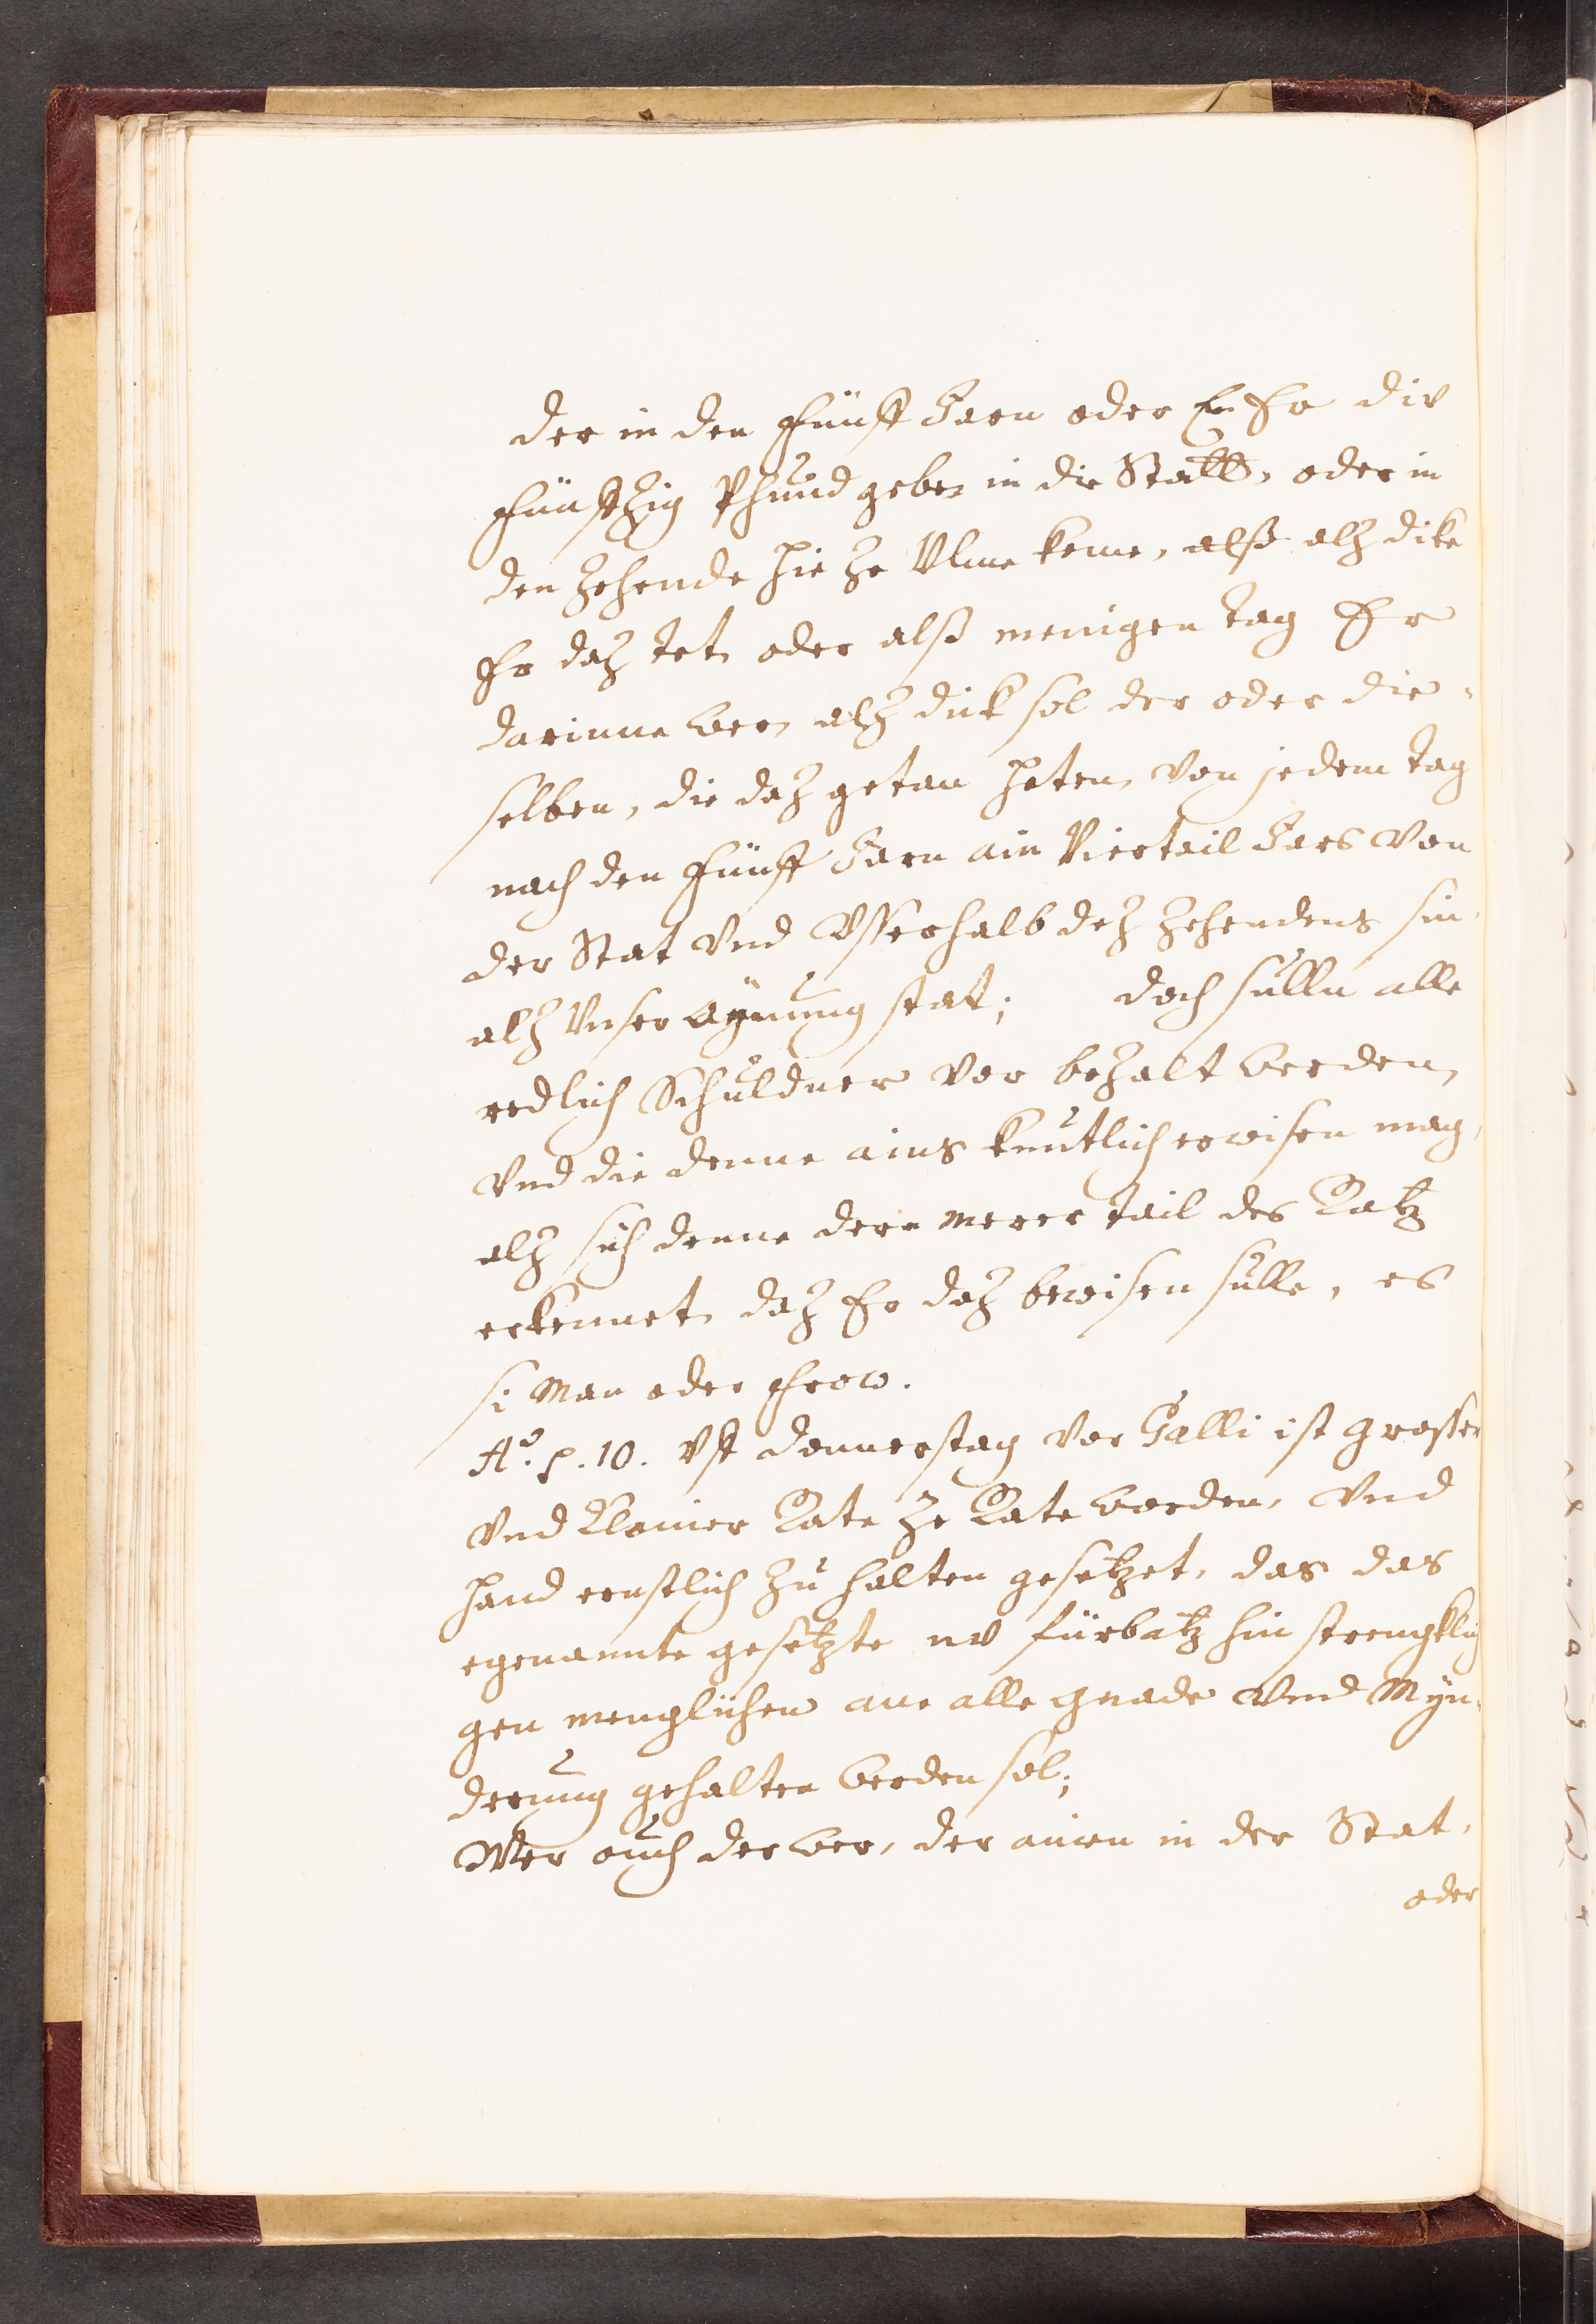 der in den Fünff Jarn oder Ee Er die
Fünffzig Pfund geben in die Statt, oder in
den zehende hie ze Ulme keme, alß alz dike
Er daz tet, oder alß menigen tag Er
darinne wer, alz dick sol der oder die-
selben, die daz getan heten, von jedem tag
nach den Fünff Jarn ain Viertail Jars von
der Stat vnd Vsserhalb dez zehendens sin,
alz Vnser aynung stat; doch sulln alle
redlich Schuldner vor bezalt werden,
Vnd die denne ains kuntlich erwisen mag,
alz sich denne dere merer tail des Ratz
erkennet, daz Er daz bewisen sulle, es
si Man oder Frow.
Ao. p. 10. Vff donnerstag vor Galli ist grosser
Vnd Clainer Rate ze Rate worden, Vnd
hand ernstlich zu halten gesetzet, das das
egenannte gesetzte nv fürbatz hin strengklich
gen menglichen ane alle gnade Vnd Myn-
derung gehalten werden sol;
Wer auch der wer, der ainen in der Stat,
oder